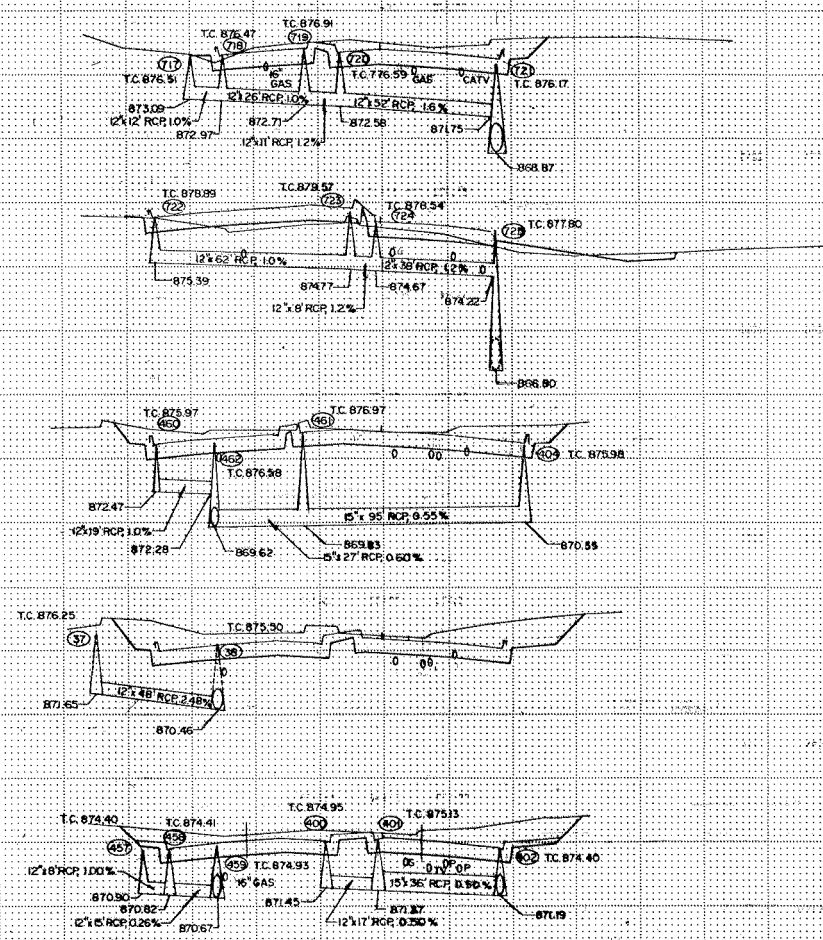 T.C. 876.91
T.C. 876.47
719
718
717
720
721
T.C. 876.51
16" GAS
T.C. 776.59
GAS
CATV
T.C. 876.17
873.09
12"x26' RCP, 1.0%
12"x52' RCP, 1.6%
12"x12' RCP, 1.0%
872.97
872.71
872.58
871.75
12"x11' RCP, 1.2%
868.87
T.C. 879.57
T.C. 878.89
723
722
T.C. 878.54
724
T.C. 877.80
725
12"x 62' RCP, 1.0%
12"x 38' RCP, 1.2%
875.39
874.77
874.67
874.22
12"x 8' RCP, 1.2%
866.80
T.C. 875.97
461
T.C. 876.97
460
462
404
T.C. 875.98
T.C. 876.58
872.47
15"x 95' RCP, 0.55%
12"x19' RCP, 1.0%
872.28
869.62
869.83
870.55
15"x 27' RCP, 0.60%
T.C. 876.25
T.C. 875.50
37
38
12"x 48' RCP, 2.48%
871.65
870.46
T.C. 874.95
T.C. 874.40
T.C. 874.41
T.C. 875.13
400
401
458
457
459
T.C. 874.93
402
T.C. 874.40
12"x8' RCP, 1.00%
16" GAS
15"x36' RCP, 0.50%
870.90
870.82
871.45
12"x15' RCP, 0.26%
870.67
12"x17' RCP, 0.50%
871.19